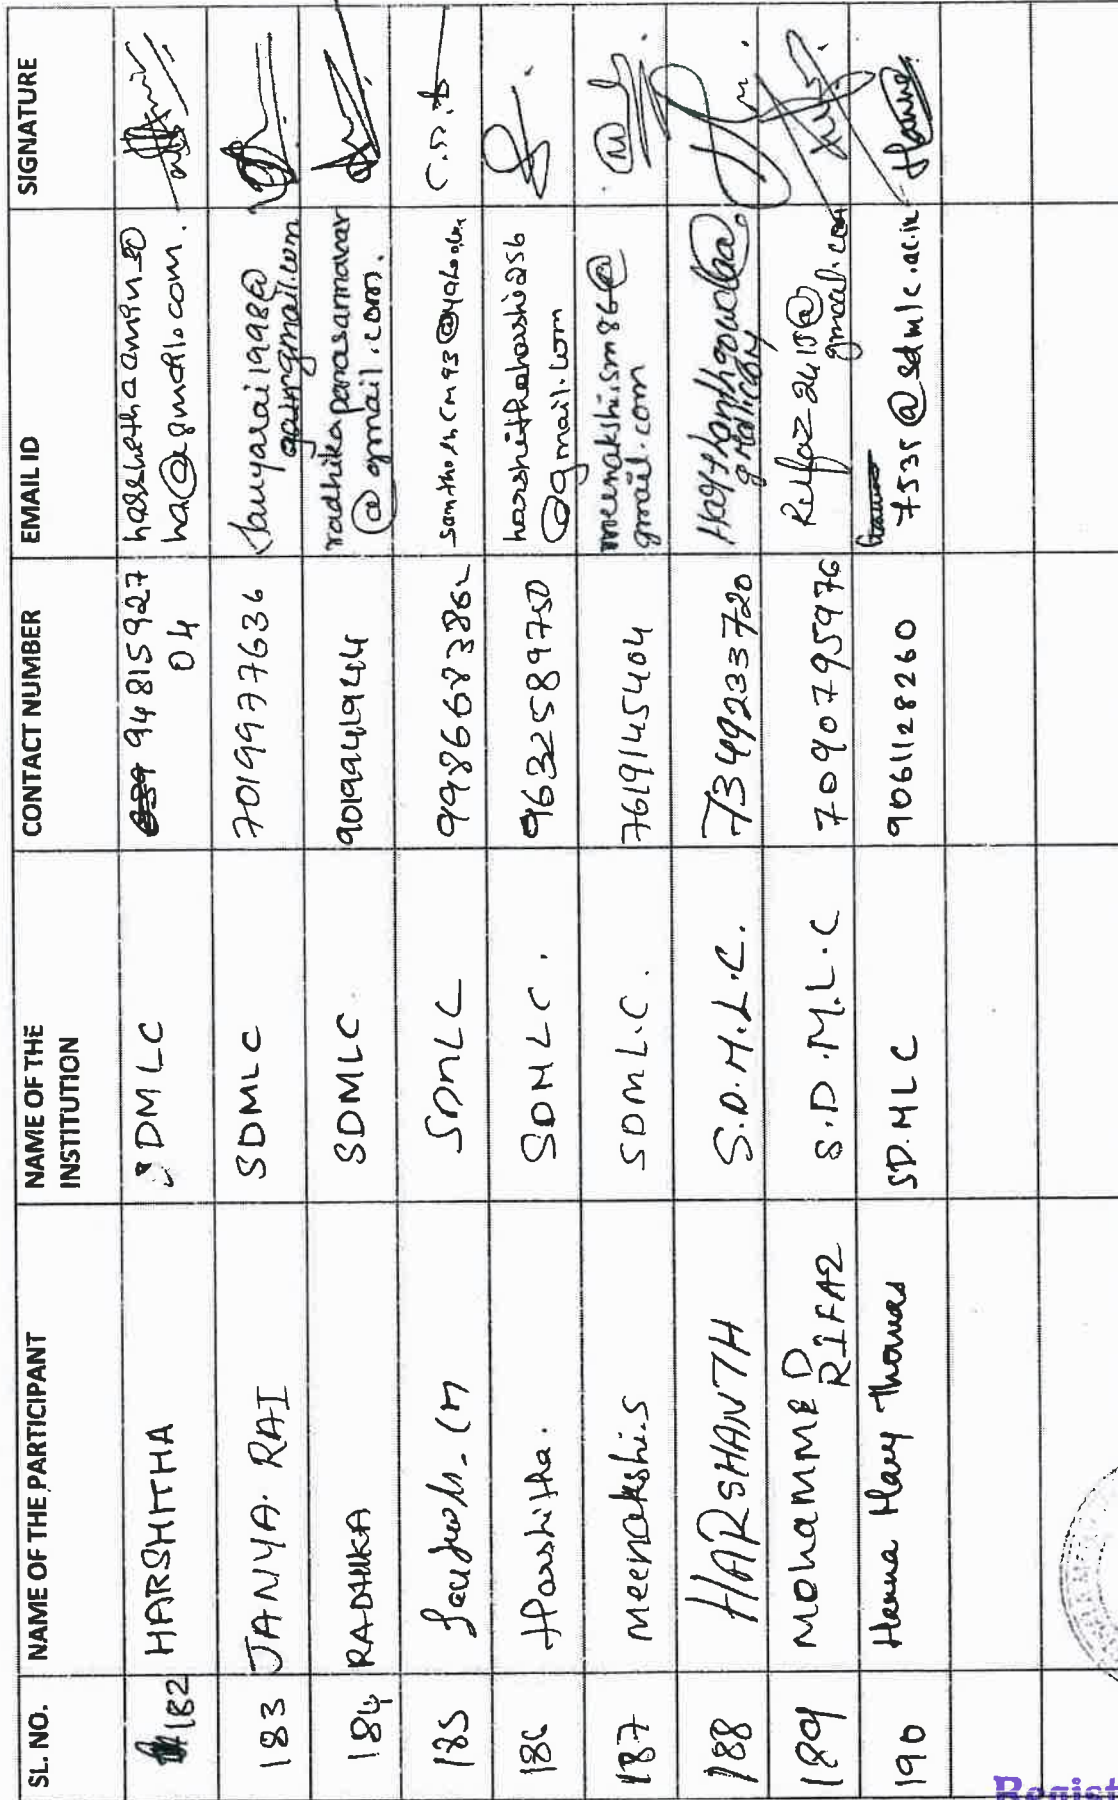 SL. NO. NAME OF THE PARTICIPANT NAME OF THE INSTITUTION CONTACT NUMBER EMAIL ID SIGNATURE
182 HARSHITHA SDMLC 94815927
04 ha@gmail.com.
183 JANYA. RAI SDMLC 7019977636 Janyarai1998@
gmail.com
184 RADHIKA SDMLC. 901994944 radhikaparasannavar
@gmail.com.
185 SDMLC 9986683862 C.S.
186 Harshitha. SDMLC. 9632589750 harshithaharshi256
@gmail.com
187 Meenakshi.S SDMLC. 7619145404 meenakshism86@
gmail.com
188 HARSHANTH S.D.M.L.C. 7349233720
gmail.com
189 MOHAMMED
RIFAZ S.D.M.L.C 7090795976 Rilfaz2418@
gmail.com
190 Hanna Mary Thomas SD.MLC 9061128260
7535@sdmlc.ac.in Hanna
Regist